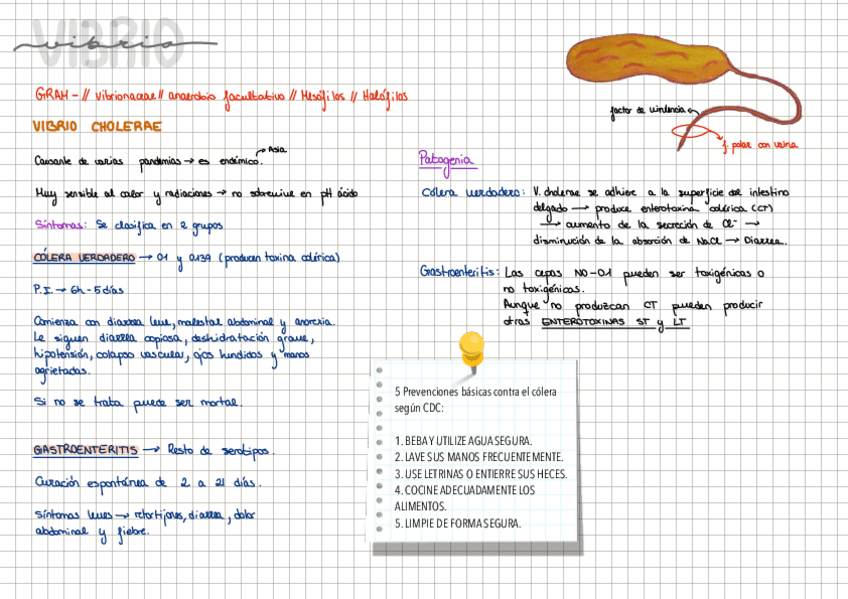 VIBRIO
vibrio
GRAM - // Vibrionaceae // anaerobio facultativo // Mesófilos // Halófilos
VIBRIO CHOLERAE
Causante de varias pandemias → es endémico.
Asia
Muy sensible al calor y radiaciones → no sobrevive en pH ácido
Síntomas: Se clasifica en 2 grupos
CÓLERA VERDADERO → 01 y 0139 (producen toxina colérica)
P.I. → 6h - 5 días
Comienza con diarrea leve, malestar abdominal y anorexia.
Le siguen diarrea copiosa, deshidratación grave,
hipotensión, colapso vascular, ojos hundidos y manos
agrietadas.
Si no se trata puede ser mortal.
GASTROENTERITIS → Resto de serotipos.
Curación espontánea de 2 a 21 días.
Síntomas leves → retortijones, diarrea, dolor
abdominal y fiebre.
factor de virulencia
f. polar con vaina
Patogenia
Cólera verdadero: V. cholerae se adhiere a la superficie del intestino
delgado → produce enterotoxina colérica (CT)
→ aumento de la secreción de Cl⁻ →
disminución de la absorción de NaCl → Diarrea.
Gastroenteritis: Las cepas NO-01 pueden ser toxigénicas o
no toxigénicas.
Aunque no produzcan CT pueden producir
otras ENTEROTOXINAS ST y LT
5 Prevenciones básicas contra el cólera
según CDC:
1. BEBA Y UTILIZE AGUA SEGURA.
2. LAVE SUS MANOS FRECUENTEMENTE.
3. USE LETRINAS O ENTIERRE SUS HECES.
4. COCINE ADECUADAMENTE LOS
ALIMENTOS.
5. LIMPIE DE FORMA SEGURA.